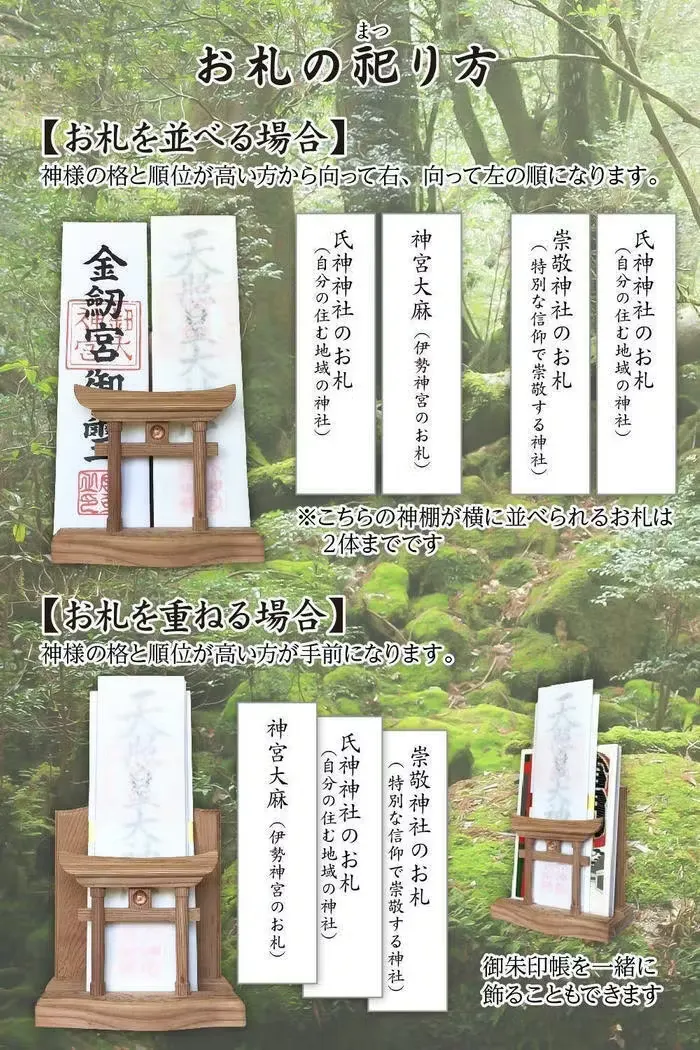 まつ
お札の祀り方
【お札を並べる場合】
神様の格と順位が高い方から向って右、向って左の順になります。
金劔宮御璽
天照皇大神
氏神神社のお札
（自分の住む地域の神社）
神宮大麻（伊勢神宮のお札）
崇敬神社のお札
（特別な信仰で崇敬する神社）
氏神神社のお札
（自分の住む地域の神社）
※こちらの神棚が横に並べられるお札は
2体までです
【お札を重ねる場合】
神様の格と順位が高い方が手前になります。
天照皇大神
神宮大麻（伊勢神宮のお札）
氏神神社のお札
（自分の住む地域の神社）
崇敬神社のお札
（特別な信仰で崇敬する神社）
天照皇大神
御朱印帳を一緒に
飾ることもできます